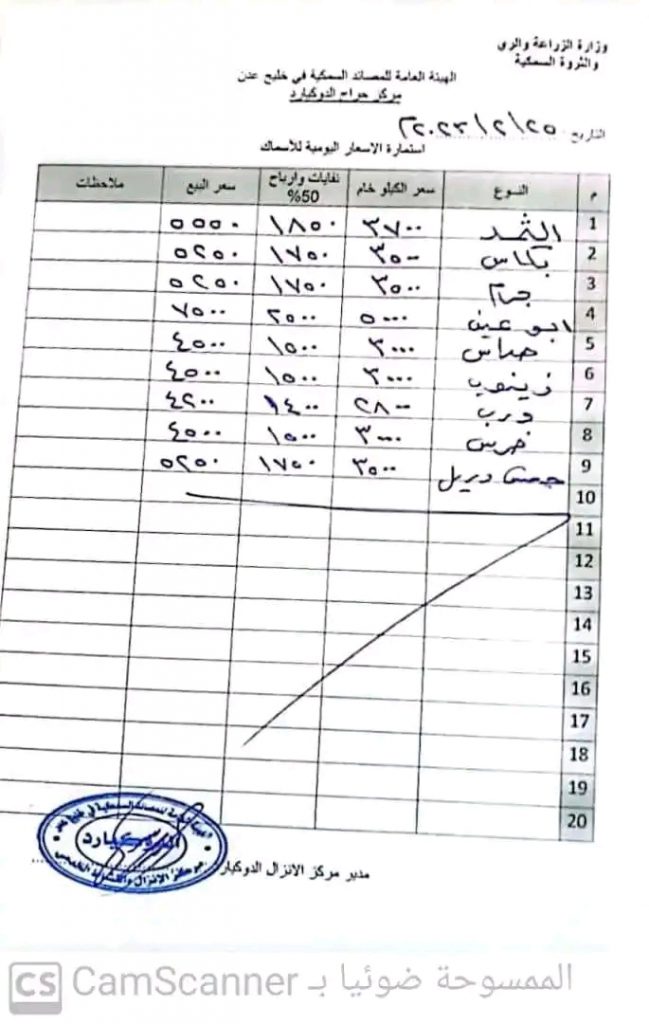 وزارة الزراعة والري
والثروة السمكية
الهيئة العامة للمصائد السمكية في خليج عدن
مركز حراج الدوكيارد
التاريخ: ٢٠٢٣/٢/٢٥
استمارة الاسعار اليومية للأسماك
م النوع سعر الكيلو خام نفايات وارباح 50% سعر البيع ملاحظات
1 الثمد ٣٧٠٠ ١٨٥٠ ٥٥٥٠
2 بكاس ٣٥٠٠ ١٧٥٠ ٥٢٥٠
3 جحام ٣٥٠٠ ١٧٥٠ ٥٢٥٠
4 ابو عين ٥٠٠٠ ٢٥٠٠ ٧٥٠٠
5 ٣٠٠٠ ١٥٠٠ ٤٥٠٠
6 زينوب ٣٠٠٠ ١٥٠٠ ٤٥٠٠
7 درب ٢٨٠٠ ١٤٠٠ ٤٢٠٠
8 ٣٠٠٠ ١٥٠٠ ٤٥٠٠
9 ديريل ٣٥٠٠ ١٧٥٠ ٥٢٥٠
10
11
12
13
14
15
16
17
18
19
20
مدير مركز الانزال الدوكيارد
الهيئة العامة للمصائد السمكية في خليج عدن
الدوكيارد
الممسوحة ضوئيا بـ CamScanner
CS